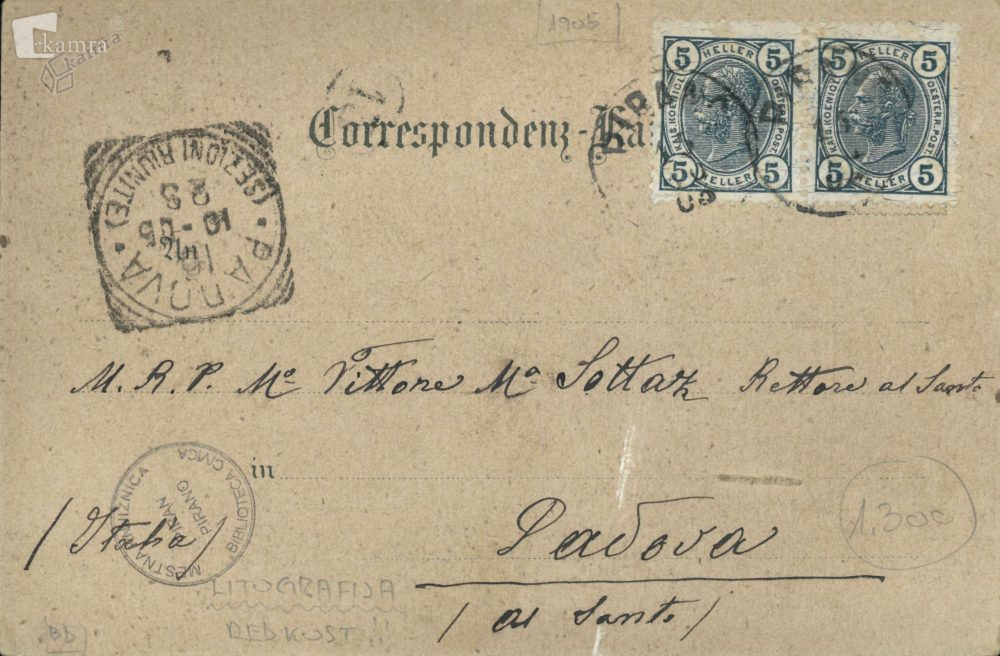 kamra
kamra
1905
5 HELLER 5
KAIS. KOENIGL. OESTERR. POST.
5 HELLER 5
5 HELLER 5
KAIS. KOENIGL. OESTERR. POST.
5 HELLER 5
PIRANO
05
Correspondenz-Ka
PADOVA
(SEZIONI RIUNITE)
10-05
2S
An
M. R. P. Mo Vittore Ma Sottaz Rettore al Santo
in
MESTNA KNJIŽNICA
PIRAN
PIRANO
BIBLIOTECA CIVICA
1.300
(Italia)
Padova
(al Santo)
LITOGRAFIJA
REDKOST!!